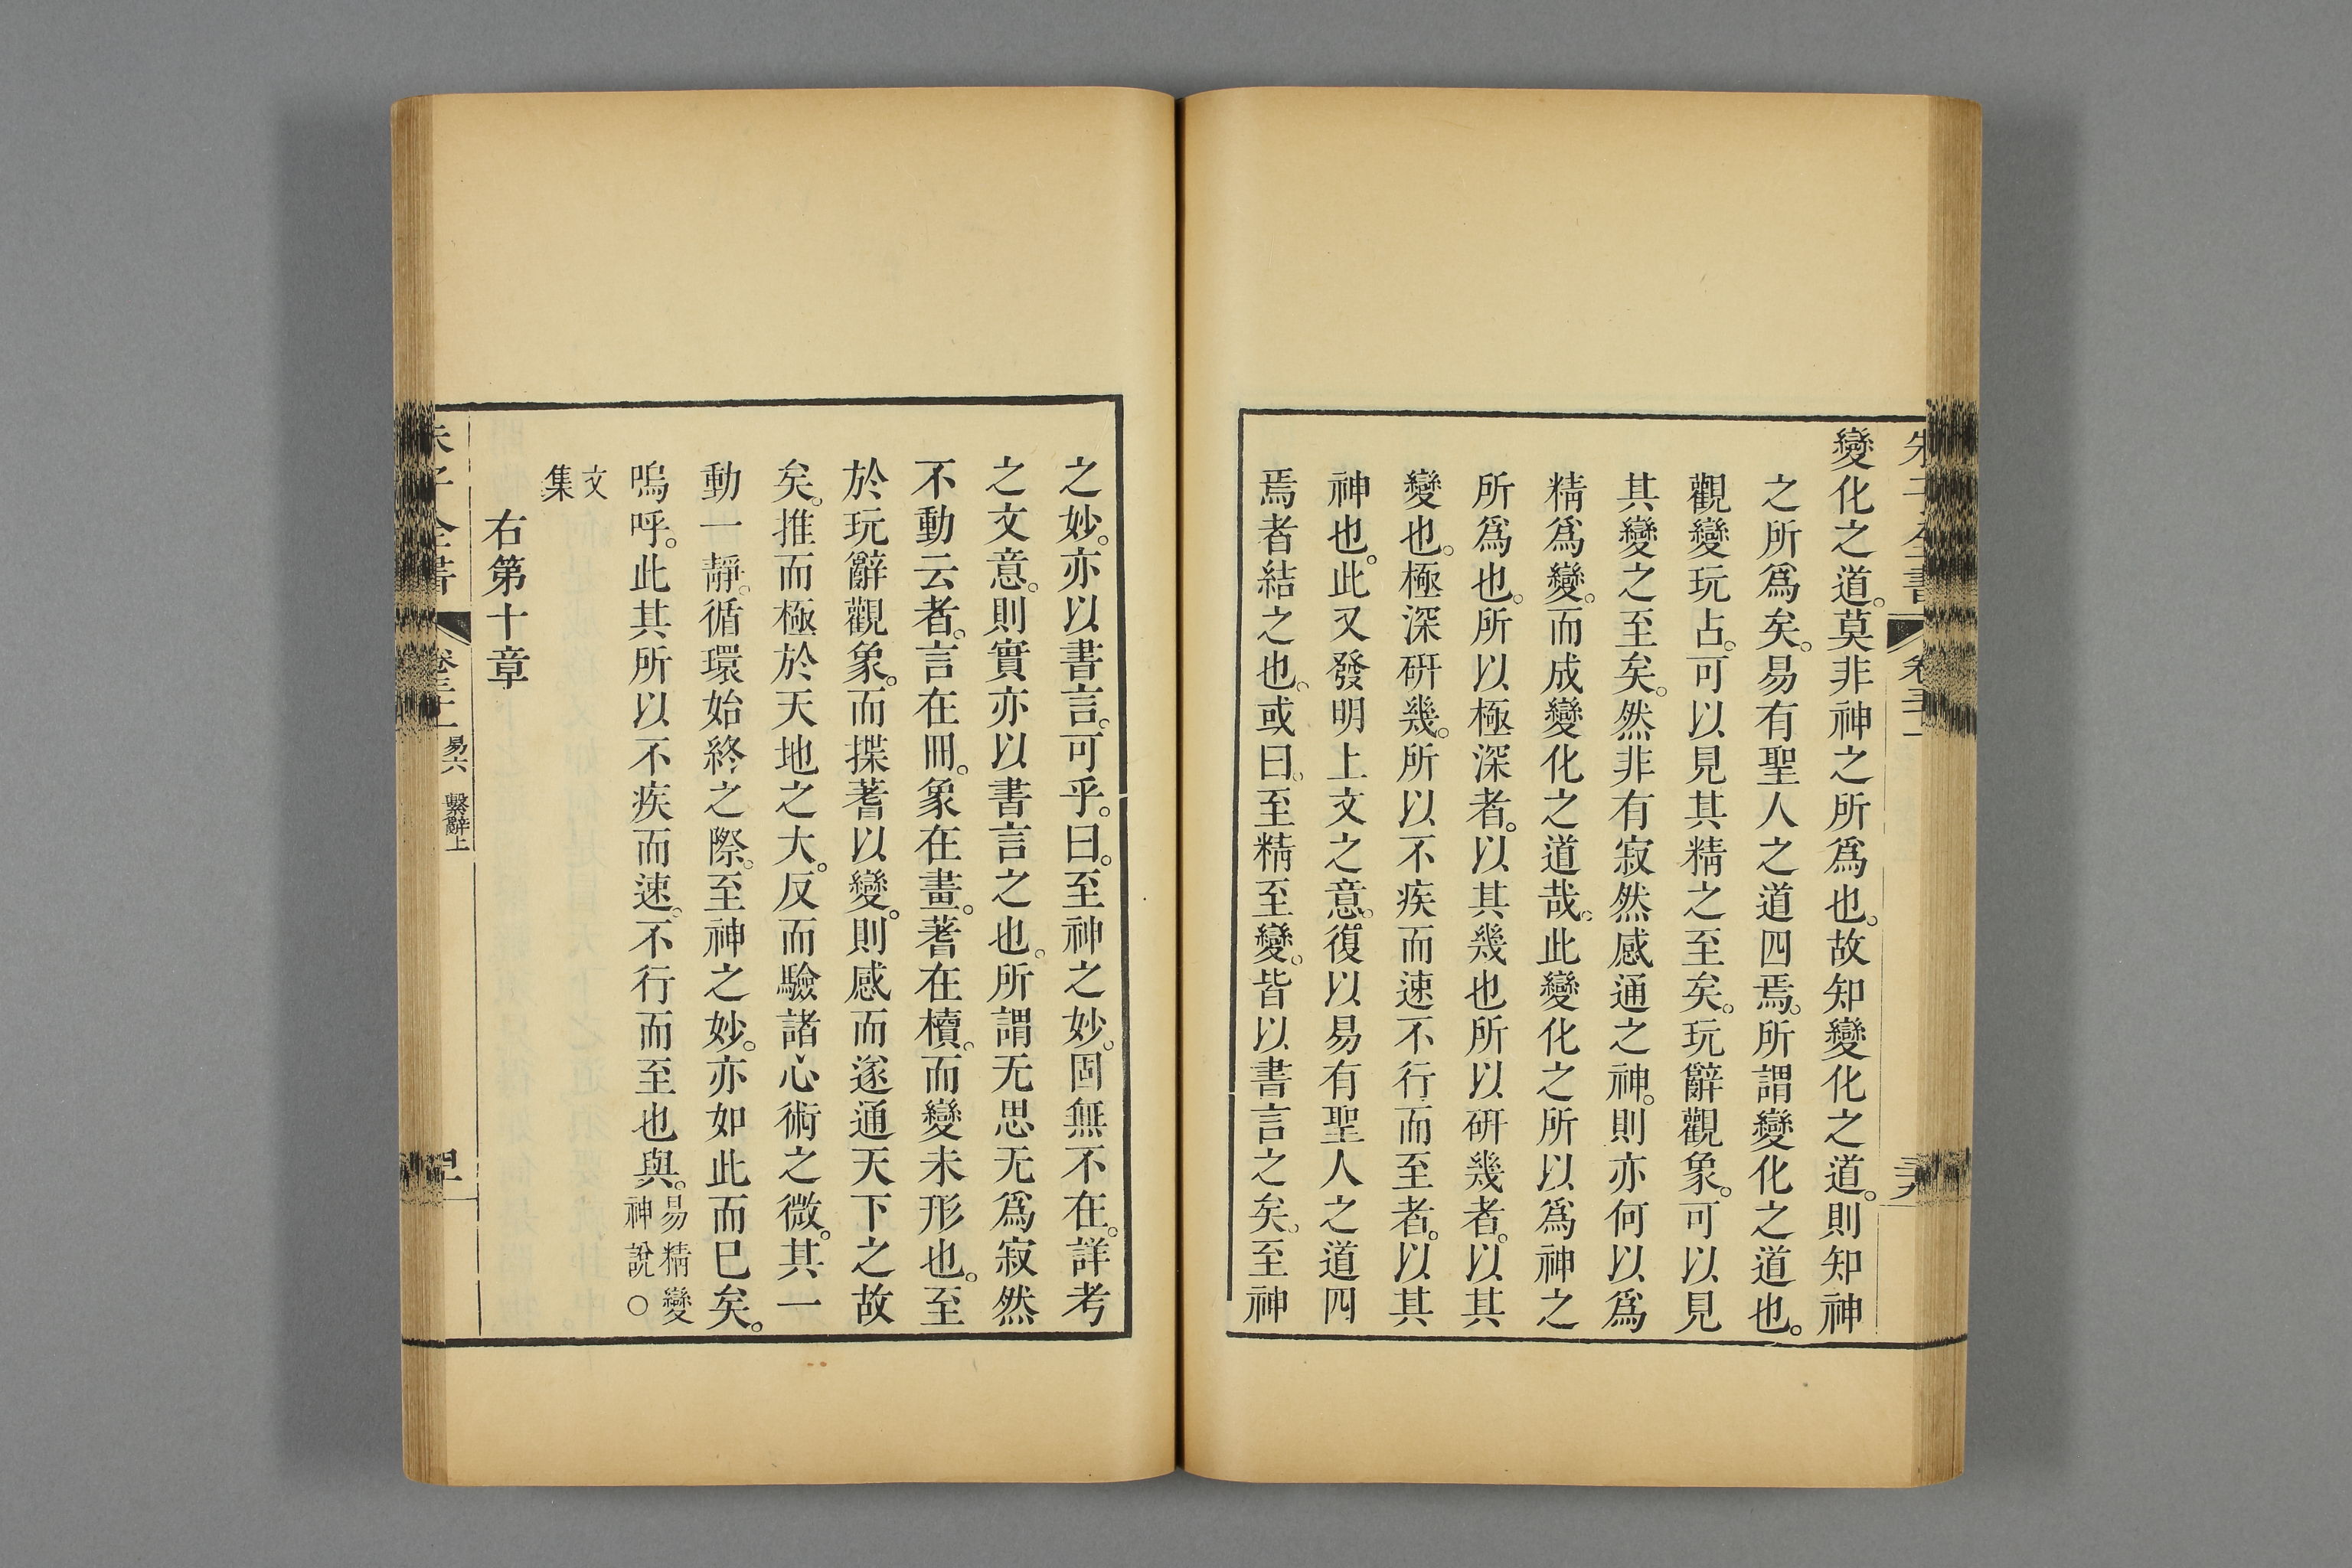 變化之道。莫非神之所爲也。故知變化之道。則知神
之所爲矣。易有聖人之道四焉。所謂變化之道也。
觀變玩占。可以見其精之至矣。玩辭觀象。可以見
其變之至矣。然非有寂然感通之神。則亦何以爲
精爲變。而成變化之道哉。此變化之所以爲神之
所爲也。所以極深者。以其幾也所以研幾者。以其
變也。極深研幾。所以不疾而速不行而至者。以其
神也。此又發明上文之意。復以易有聖人之道四
焉者結之也。或曰。至精至變。皆以書言之矣。至神
之妙。亦以書言。可乎。曰。至神之妙。固無不在。詳考
之文意。則實亦以書言之也。所謂无思无爲寂然
不動云者。言在冊。象在畫。蓍在櫝。而變未形也。至
於玩辭觀象。而揲蓍以變。則感而遂通天下之故
矣。推而極於天地之大。反而驗諸心術之微。其一
動一靜。循環始終之際。至神之妙。亦如此而巳矣。
嗚呼。此其所以不疾而速。不行而至也與。易精變神說○
文集
右第十章
易六 繫辭上